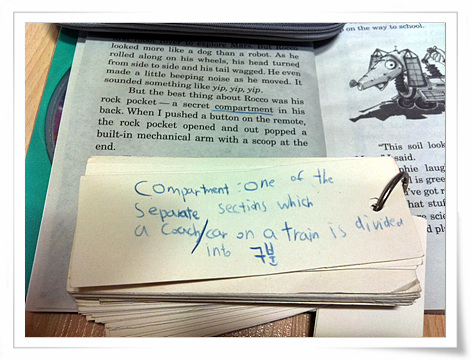 looked more like a dog than a robot. As he
rolled along on his wheels, his head turned
from side to side and his tail wagged. He even
made a little beeping noise as he moved. It
sounded something like yip, yip, yip.
But the best thing about Rocco was his
rock pocket — a secret compartment in his
back. When I pushed a button on the remote,
the rock pocket opened and out popped a
built-in mechanical arm with a scoop at the
end.
on the way to school.
"This soil look
said.
phie laug
is gree
I've got r
that stuf
scie
d pl
Compartment : One of the
Separate sections which
a Coach/car on a train is divided
into 구분